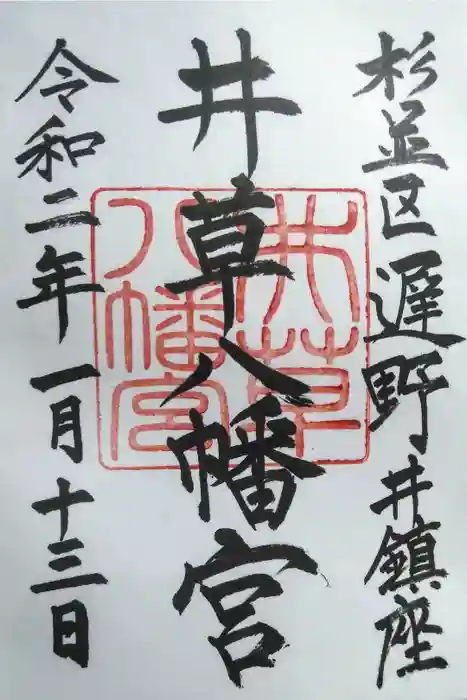 杉並区遅野井鎮座
井草八幡宮
令和二年一月十三日
井草
八幡宮